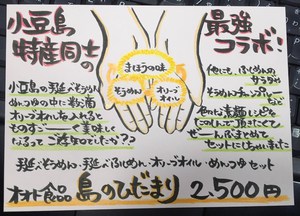 小豆島の
特産同士
最強
コラボ！
まほうの味
そうめん
オリーブ
オイル
小豆島の手延べそうめん
めんつゆの中に数滴
オリーブオイルを入れると
ものすごーく美味しく
なるってご存知でしたか？
他にも、ふしめんの
サラダや
そうめんチャンプルー
などで
セットにしちゃいました
手延べそうめん・手延べふしめん・オリーブオイル・めんつゆセット
オオト食品 島のひだまり 2,500円